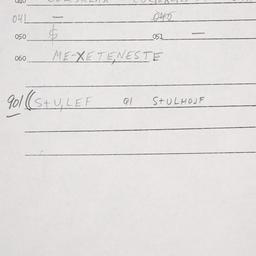 041 — 045
050 $ 052 —
060 ME-XETENESTE
901 ((StU,LEF 91 StULHOJF